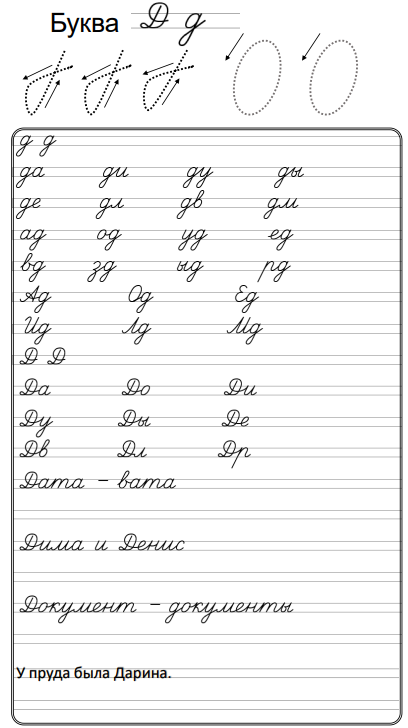 Буква Д д
д д
да ди ду ды
де дл дв дм
ад од уд ед
вд зд ыд рд
Ад Од Ед
Ид Лд Мд
Д Д
Да До Ди
Ду Ды Де
Дв Дл Др
Дата – вата
Дима и Денис
Документ – документы
У пруда была Дарина.